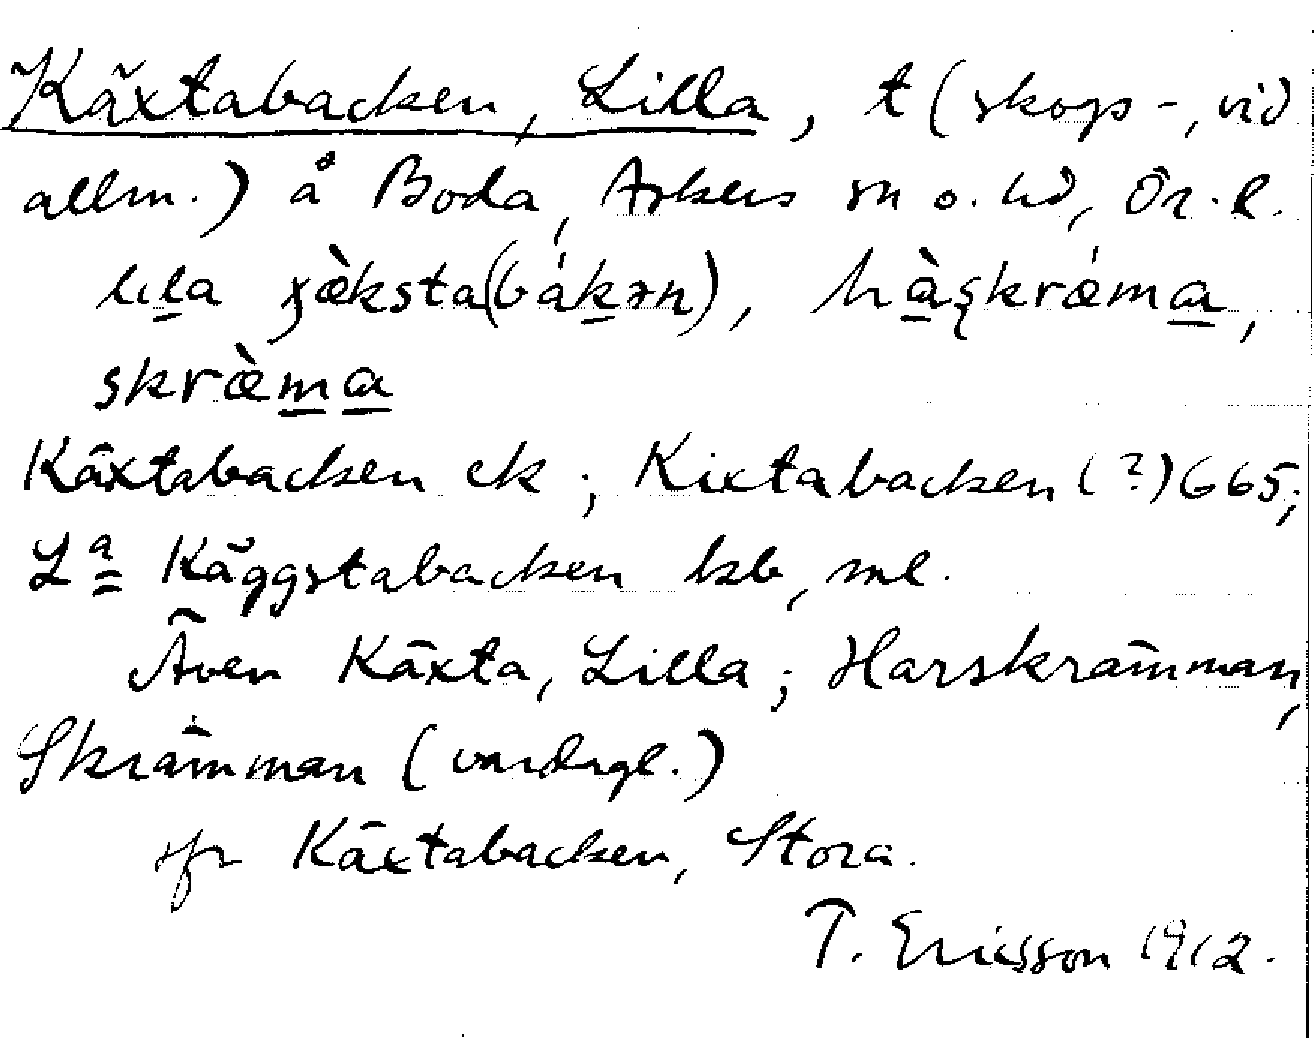 Käxtabacken, Lilla, t (skogs-, vid
allm.) å Boda, Askers sn o. hd, Ör. l.
lila χæ̀ksta(bákən), hàşkrǽma,
skræ̀ma
Käxtabacken ek; Kixtabacken (?) 665;
La Käggstabacken kb, ml.
Även Käxta, Lilla; Harskrämman,
Skrämman (vardagl.)
jfr Käxtabacken, Stora.
T. Ericsson 1912.